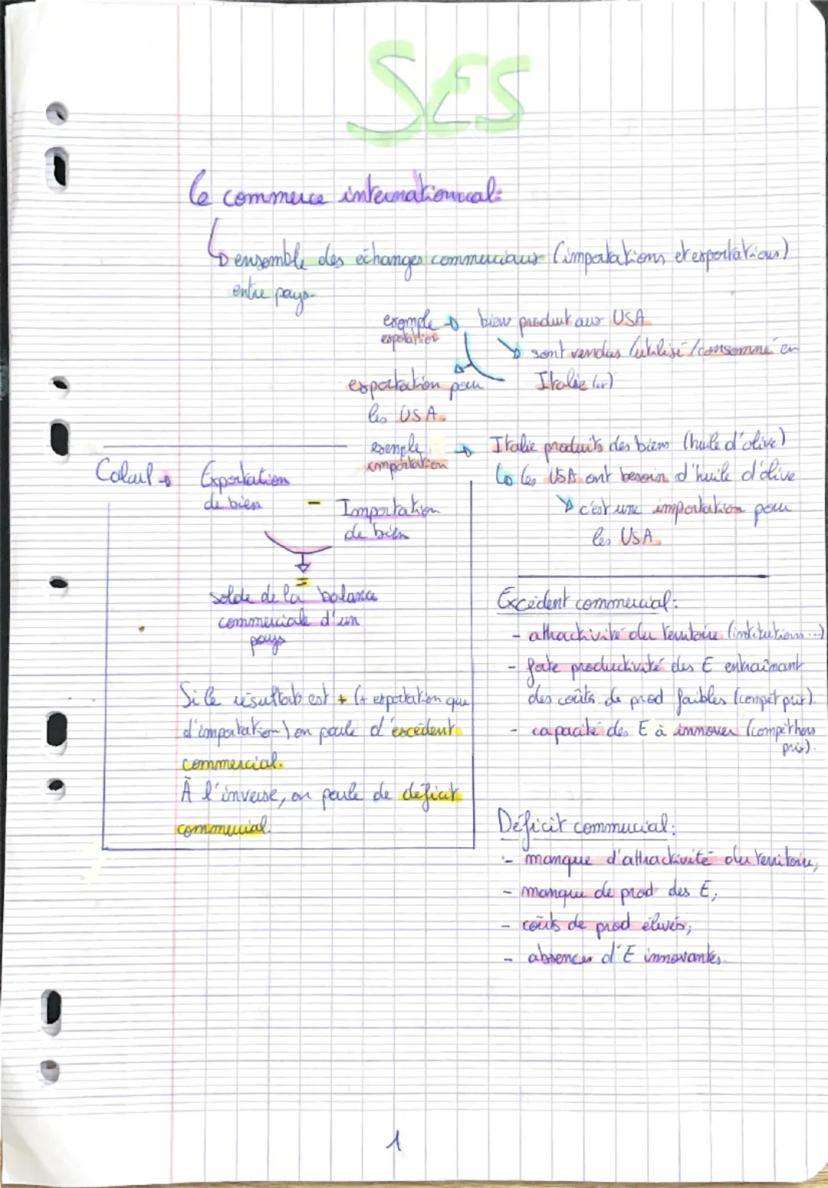 SES
Le commerce internationnal:
ensemble des échanges commerciaux (importations et exportations)
entre pays.
exemple → bien produit aux USA
exportation
sont vendus /utilisé /consommé en
Italie
exportation pour
les USA.
exemple → Italie produits des biens (huile d'olive)
importation
les USA ont besoin d'huile d'olive
c'est une importation pour
les USA.
Calcul → Exportation
de bien
-
Importation
de bien
=
solde de la balance
commerciale d'un
pays
Si le résultat est + (+ exportation que
d'importation) on parle d'excédent
commercial.
À l'inverse, on parle de déficit
commercial.
Excédent commercial:
- attractivité du territoire (institutions...)
- forte productivité des E entraînant
des coûts de prod faibles (compet prix).
- capacité des E à innover (compet hors
prix).
Déficit commercial:
- manque d'attractivité du territoire,
- manque de prod des E,
- coûts de prod élevés,
- absences d'E innovantes.
1